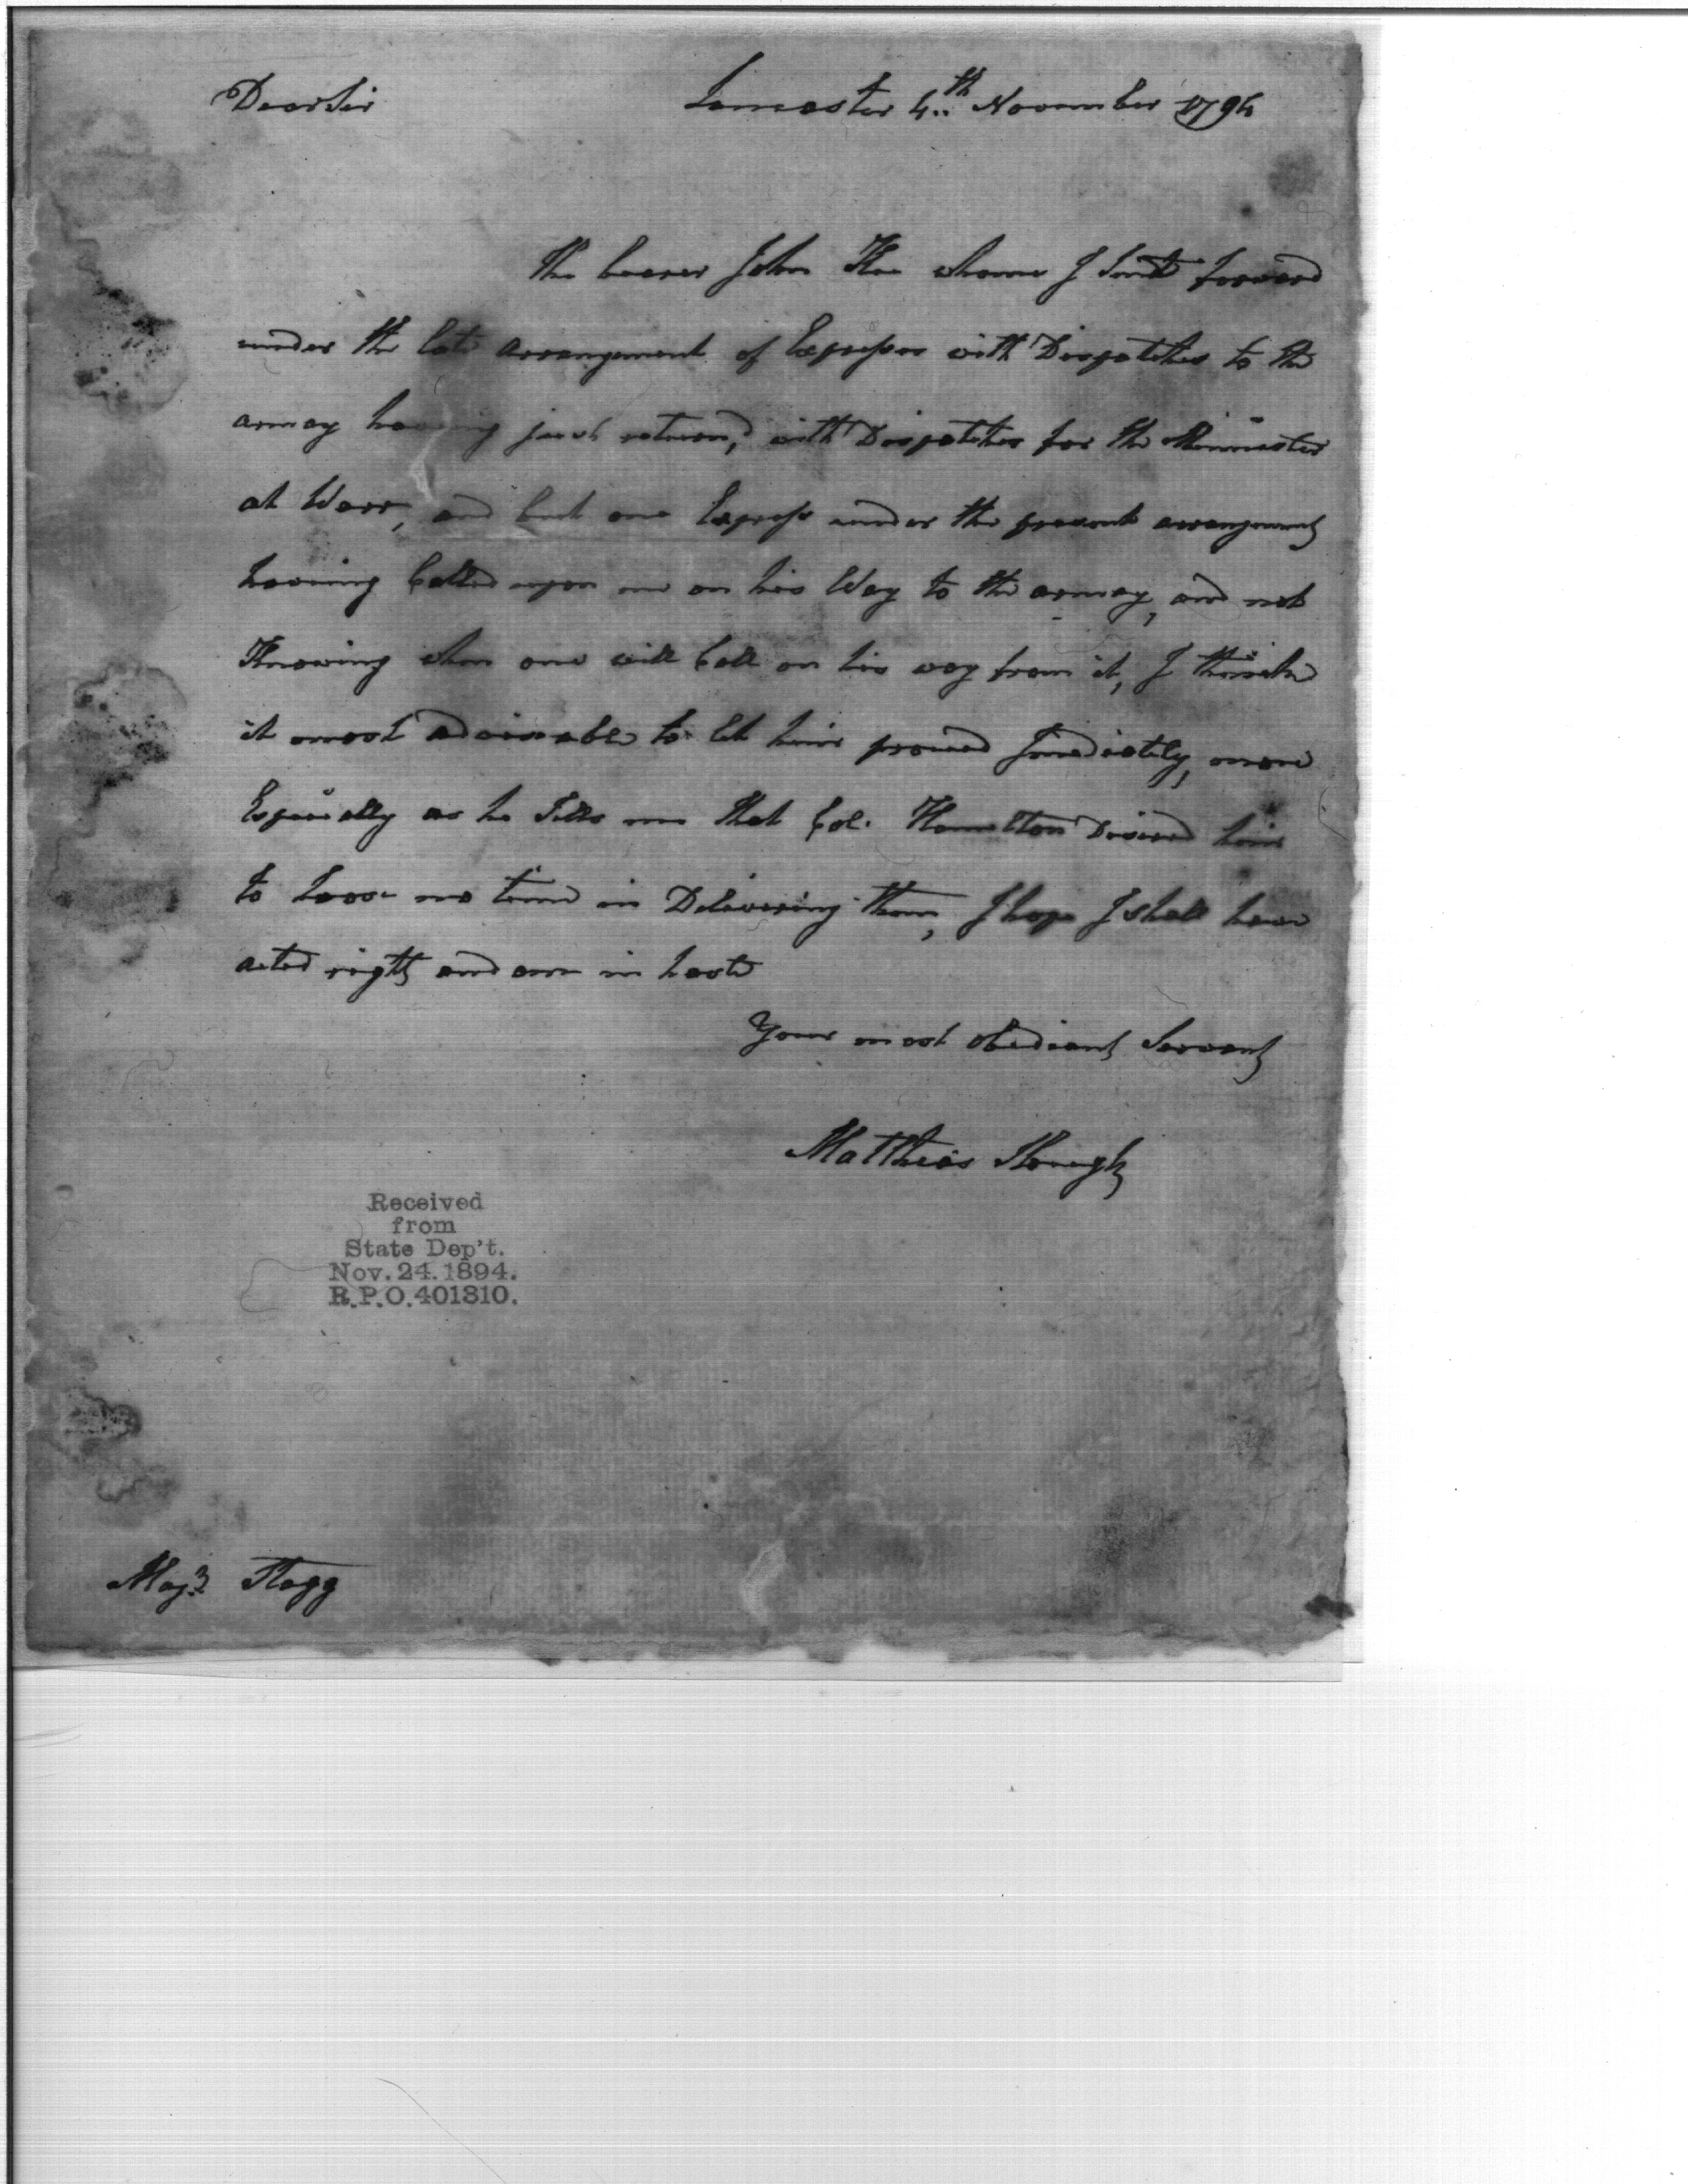 Dear Sir Lancaster 4th November 1794
the bearer John Hoe whome I Sent forward
under the late arrangement of Expresses with Dispatches to the
army having just return'd, with Dispatches for the Minnister
at Warr, and but one Express under the present arrangement
haveing Called upon me on his Way to the army, and not
Knowing when one will Call on his way from it, I think
it most adviseable to let him proceed Imediately, more
Especially as he Tells me that Col. Hamelton Desired him
to Loose no time in Delivering them, I hope I shall have
acted right and am in haste
Your most obediant Servant
Matthias Slough
Received
from
State Dep't.
Nov. 24. 1894.
R.P.O. 401310.
Majr Stagg